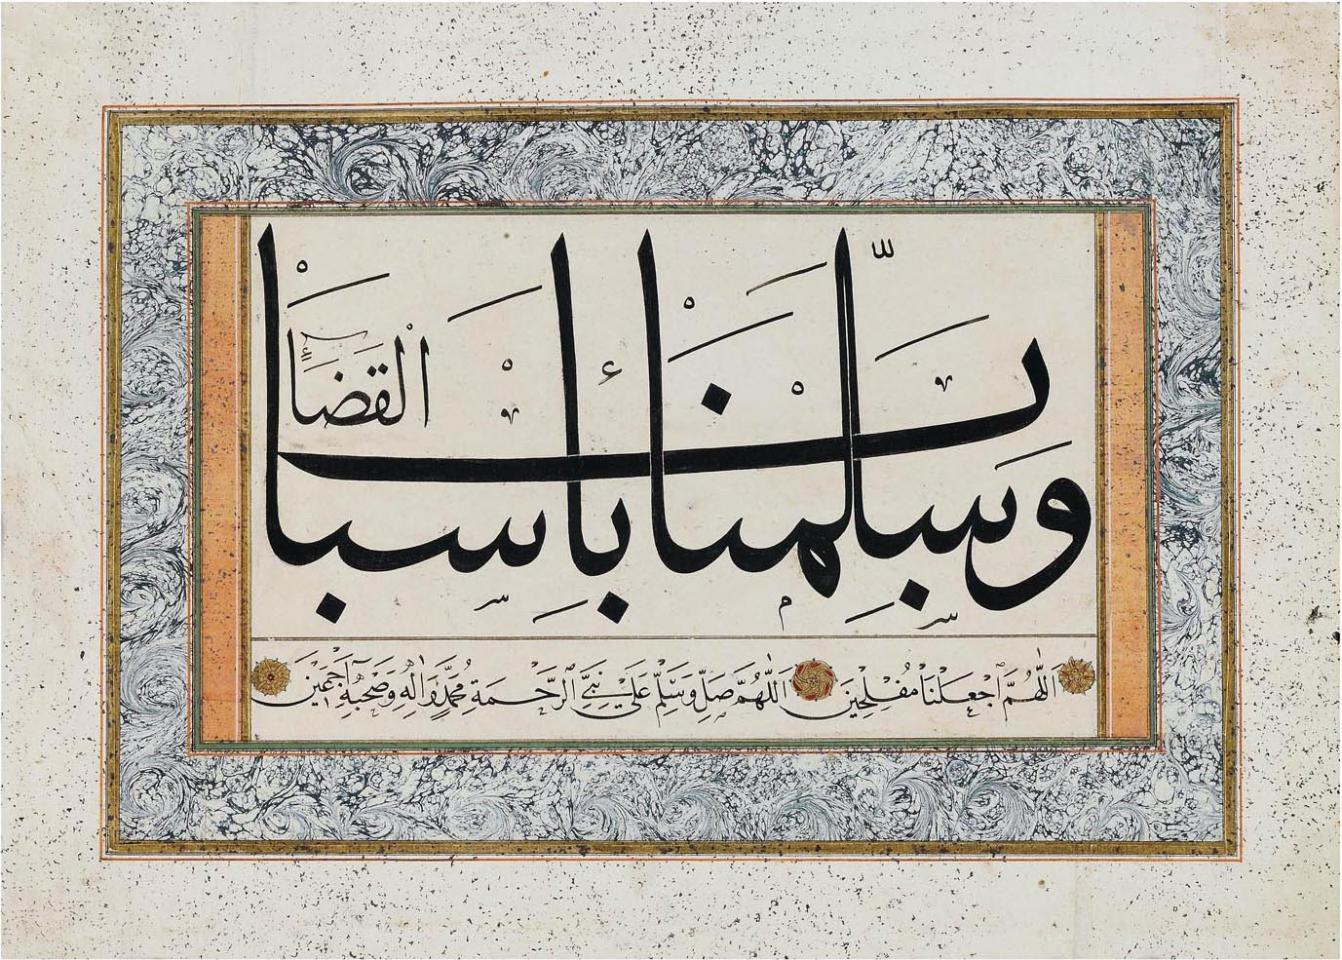 وَسَلِّمْنَا بِأَسْبَابِ الْقَضَاءِ
اَللّٰهُمَّ اجْعَلْنَا مُفْلِحِينَ اَللّٰهُمَّ صَلِّ وَسَلِّمْ عَلَى نَبِيِّ الرَّحْمَةِ مُحَمَّدٍ وَاٰلِهِ وَصَحْبِهِ اَجْمَعِينَ